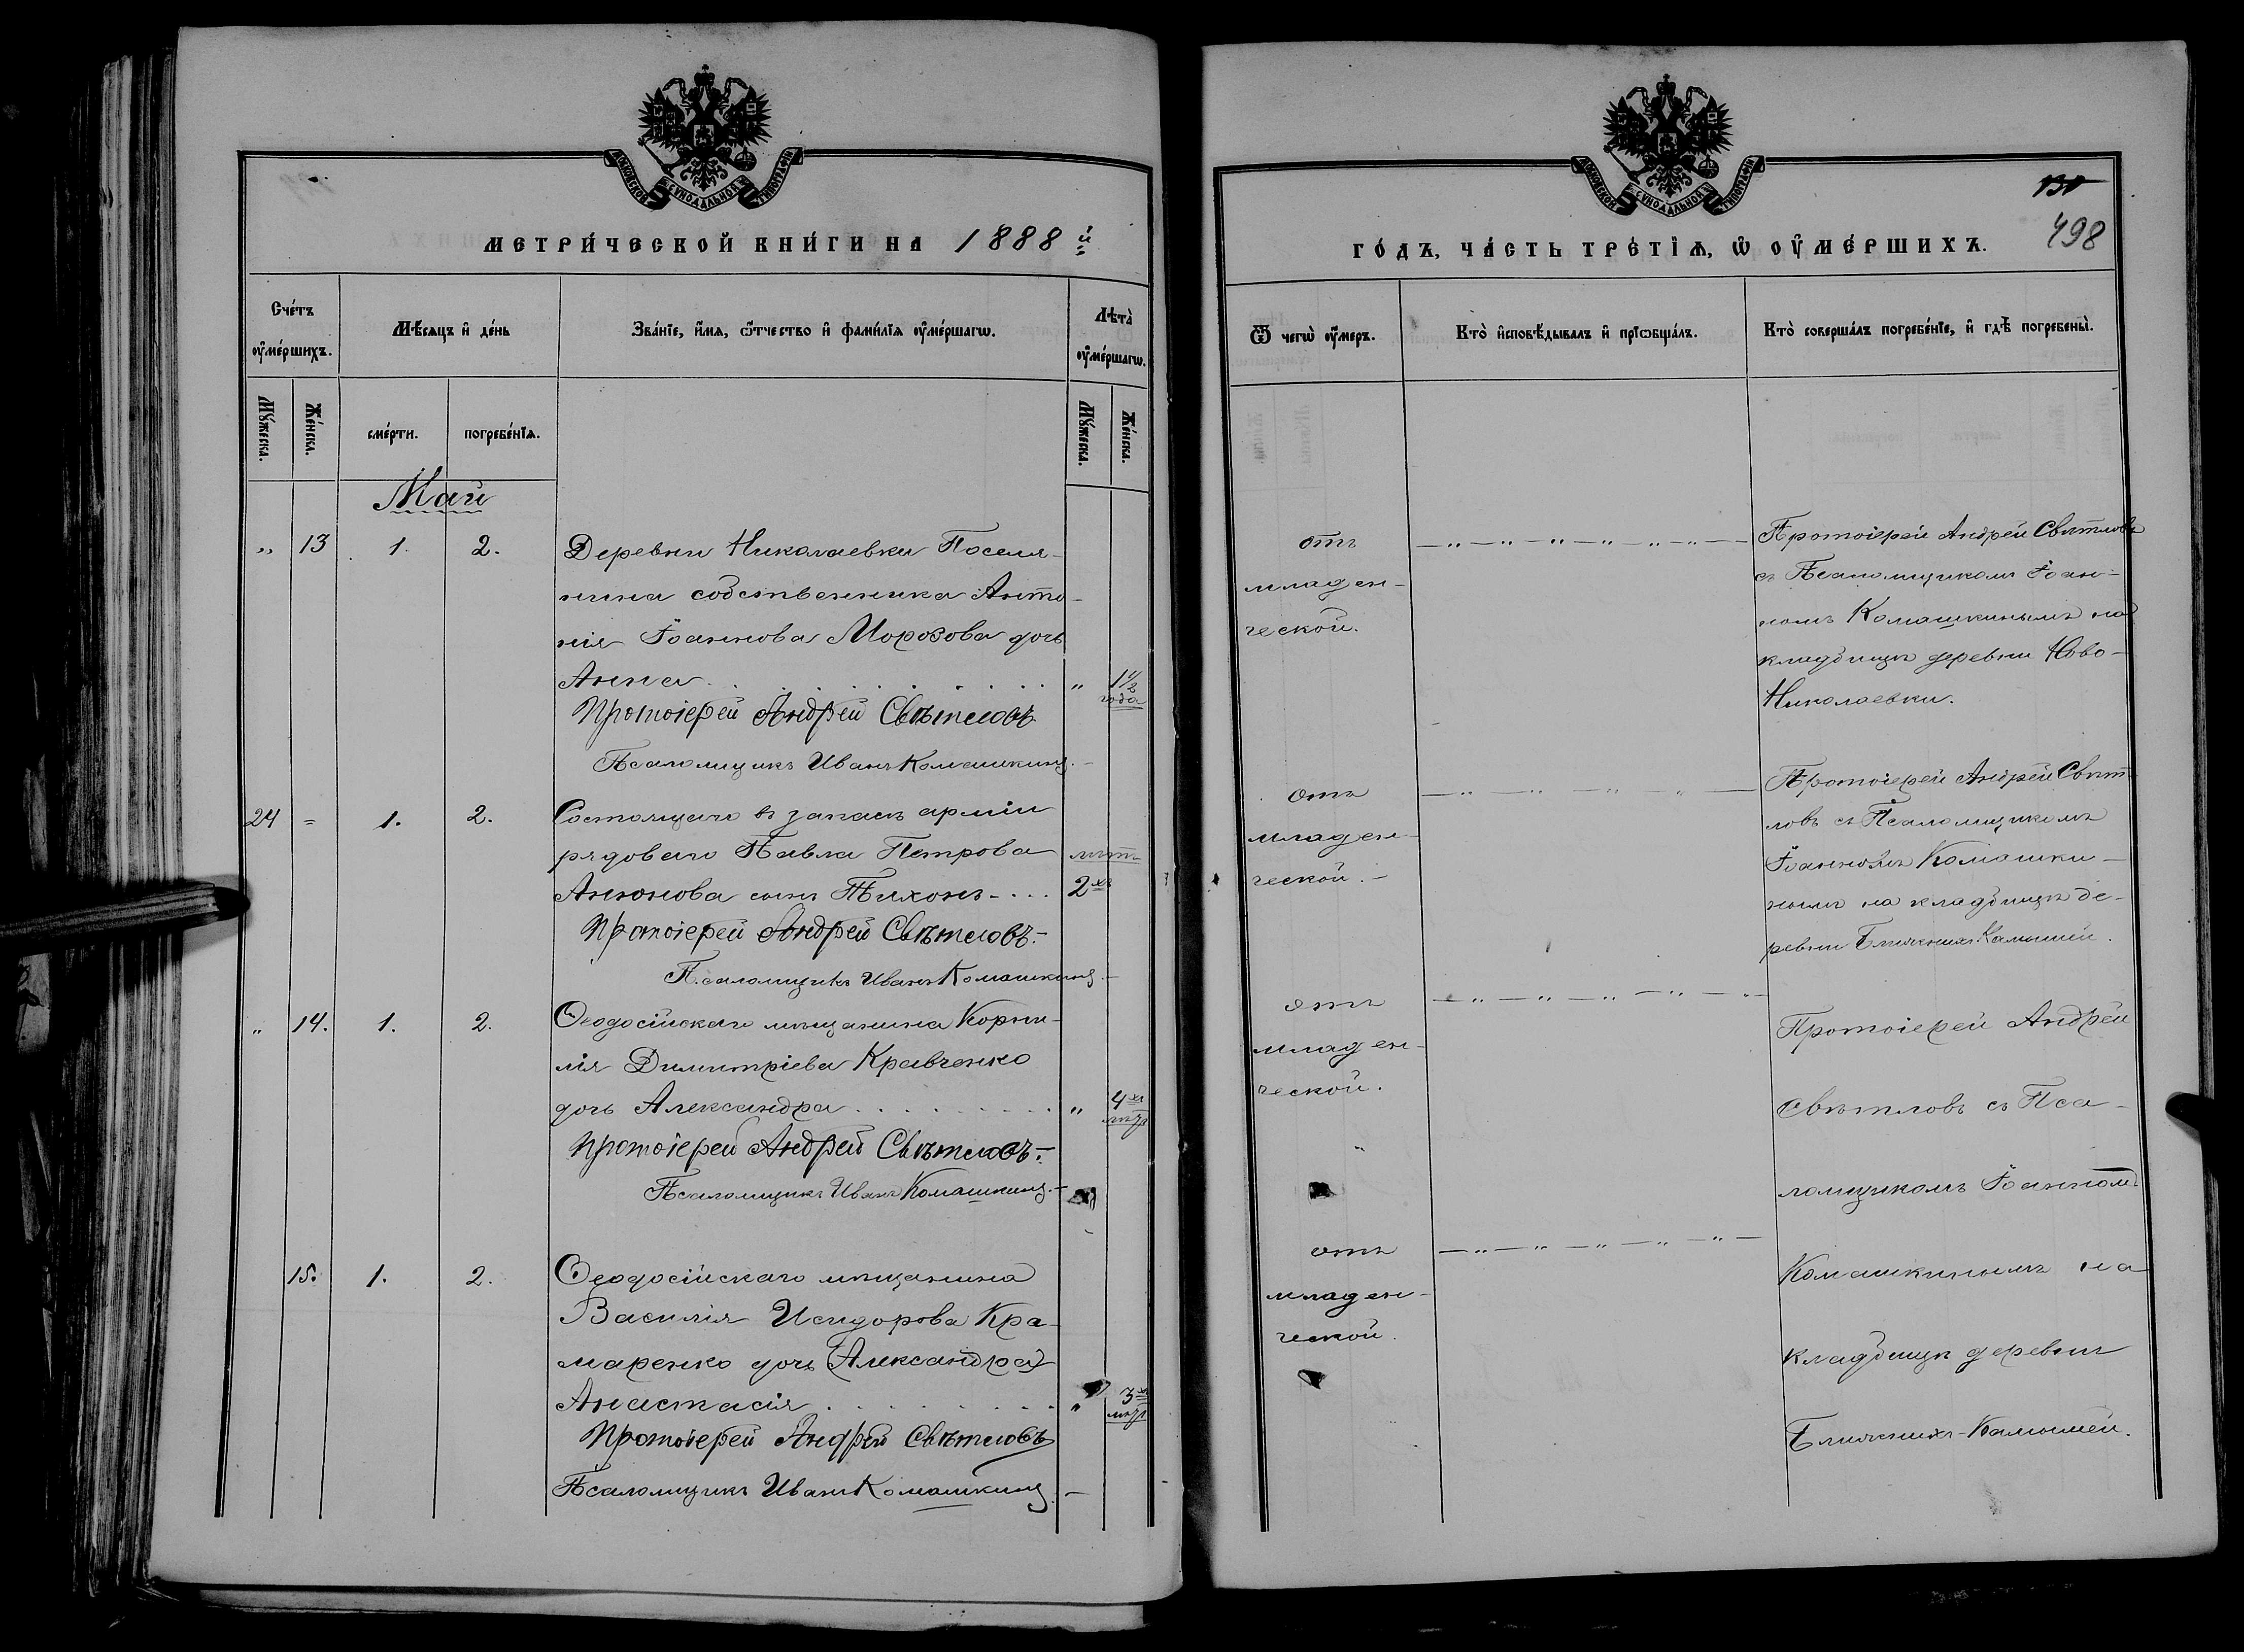 МОСКОВСКОЙ СУНОДАЛЬНОЙ ТИПОГРАФІИ
МЕТРИ́ЧЕСКОЙ КНИ́ГИ НА 1888 й
Сче́тъ ᲂу҆ме́ршихъ.
Мѣ́сяцъ и҆ де́нь
Зва́нїе, и҆́мѧ, ѻ҆́тчество и҆ фами́лїѧ ᲂу҆ме́ршагѡ.
Лѣта̀ ᲂу҆ме́ршагѡ.
Мꙋ́жеска.
Же́нска.
сме́рти.
погребе́нїѧ.
Мꙋ́жеска.
Же́нска.
Май
„ 13 1. 2. Деревни Николаевки Поселя-
нина собственника Анто-
нія Іоаннова Морозова дочь
Анна . . . . . . . . . „ 1 1/2
года
Протоіерей Андрей Свѣтловъ
Псаломщикъ Иванъ Комашкинъ.
24 = 1. 2. Состоящаго въ запасѣ арміи
рядоваго Павла Петрова лѣтъ
Анюнова сынъ Тихонъ - . . . 2хъ
Протоіерей Андрей Свѣтловъ.-
Псаломщикъ Иванъ Комашкинъ.-
„ 14. 1. 2. Ѳеодосійскаго мѣщанина Корни-
лія Димитріева Кравченко
дочь Александра . . . . . . . . . „ 4хъ
мѣц
Протоіерей Андрей Свѣтловъ.-
Псаломщикъ Иванъ Комашкинъ.-
15. 1. 2. Ѳеодосійскаго мѣщанина
Василія Исидорова Кра-
маренко дочь (Александра)
Анастасія . . . . . . . . . „ 3хъ
мѣц
Протоіерей Андрей Свѣтловъ
Псаломщикъ Иванъ Комашкинъ. -
МОСКОВСКОЙ СУНОДАЛЬНОЙ ТИПОГРАФІИ
498
ГО́ДЪ, ЧА́СТЬ ТРЕ́ТЇѦ, Ѡ҆ ОУ҆МЕ́РШИХЪ.
Ѿ чегѡ̀ ᲂу҆́меръ.
Кто̀ и҆сповѣ́дывалъ и҆ прїѡбща́лъ.
Кто̀ соверша́лъ погребе́нїе, и҆ гдѣ̀ погребены̀.
отъ
младен-
ческой.
Протоіерей Андрей Свѣтловъ
съ Псаломщикомъ Іоан-
номъ Комашкинымъ на
кладбищѣ деревни Ново-
Николаевки.
отъ
младен-
ческой.-
Протоіерей Андрей Свѣт-
ловъ съ Псаломщикомъ
Іоанномъ Комашки-
нымъ на кладбищѣ де-
ревни Ближнихъ Камышей.
отъ
младен-
ческой.
отъ
младен-
ческой.
Протоіерей Андрей
Свѣтловъ съ Пса-
ломщикомъ Іоанномъ
Комашкинымъ на
кладбищѣ деревни
Ближнихъ-Камышей.